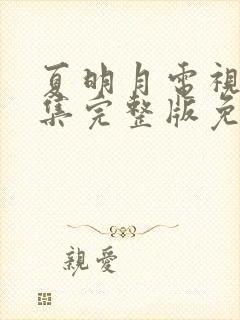 夏明月電視
集完整版免
親愛